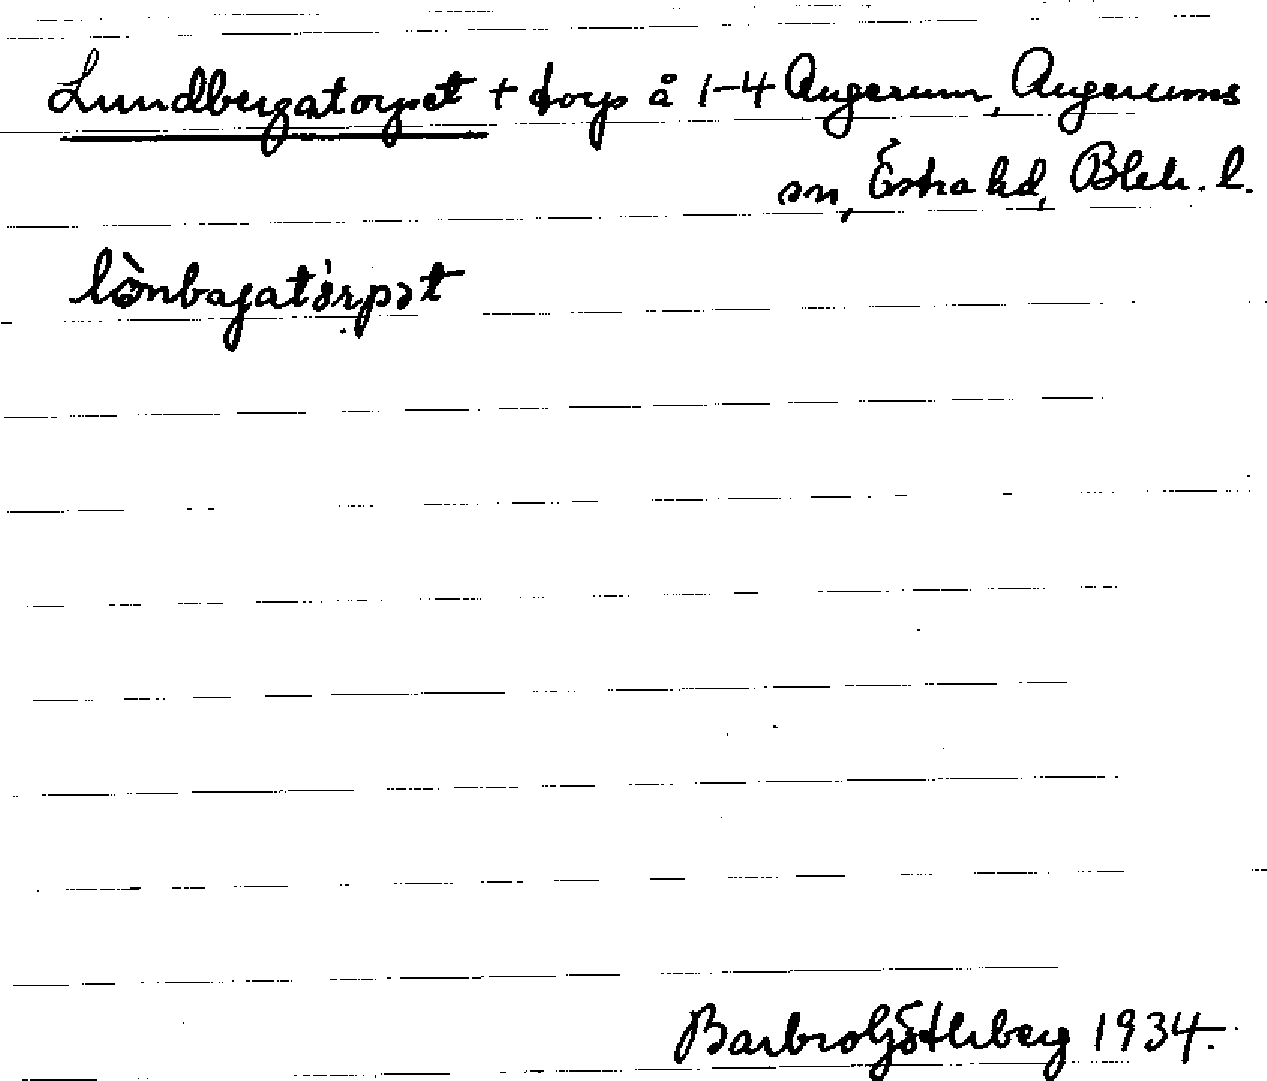 Lundbergatorpet + torp å 1-4 Augerum, Augerums
sn, Östra hd, Blek. l.
lònbagatórpət
Barbro Götlrberg 1934.